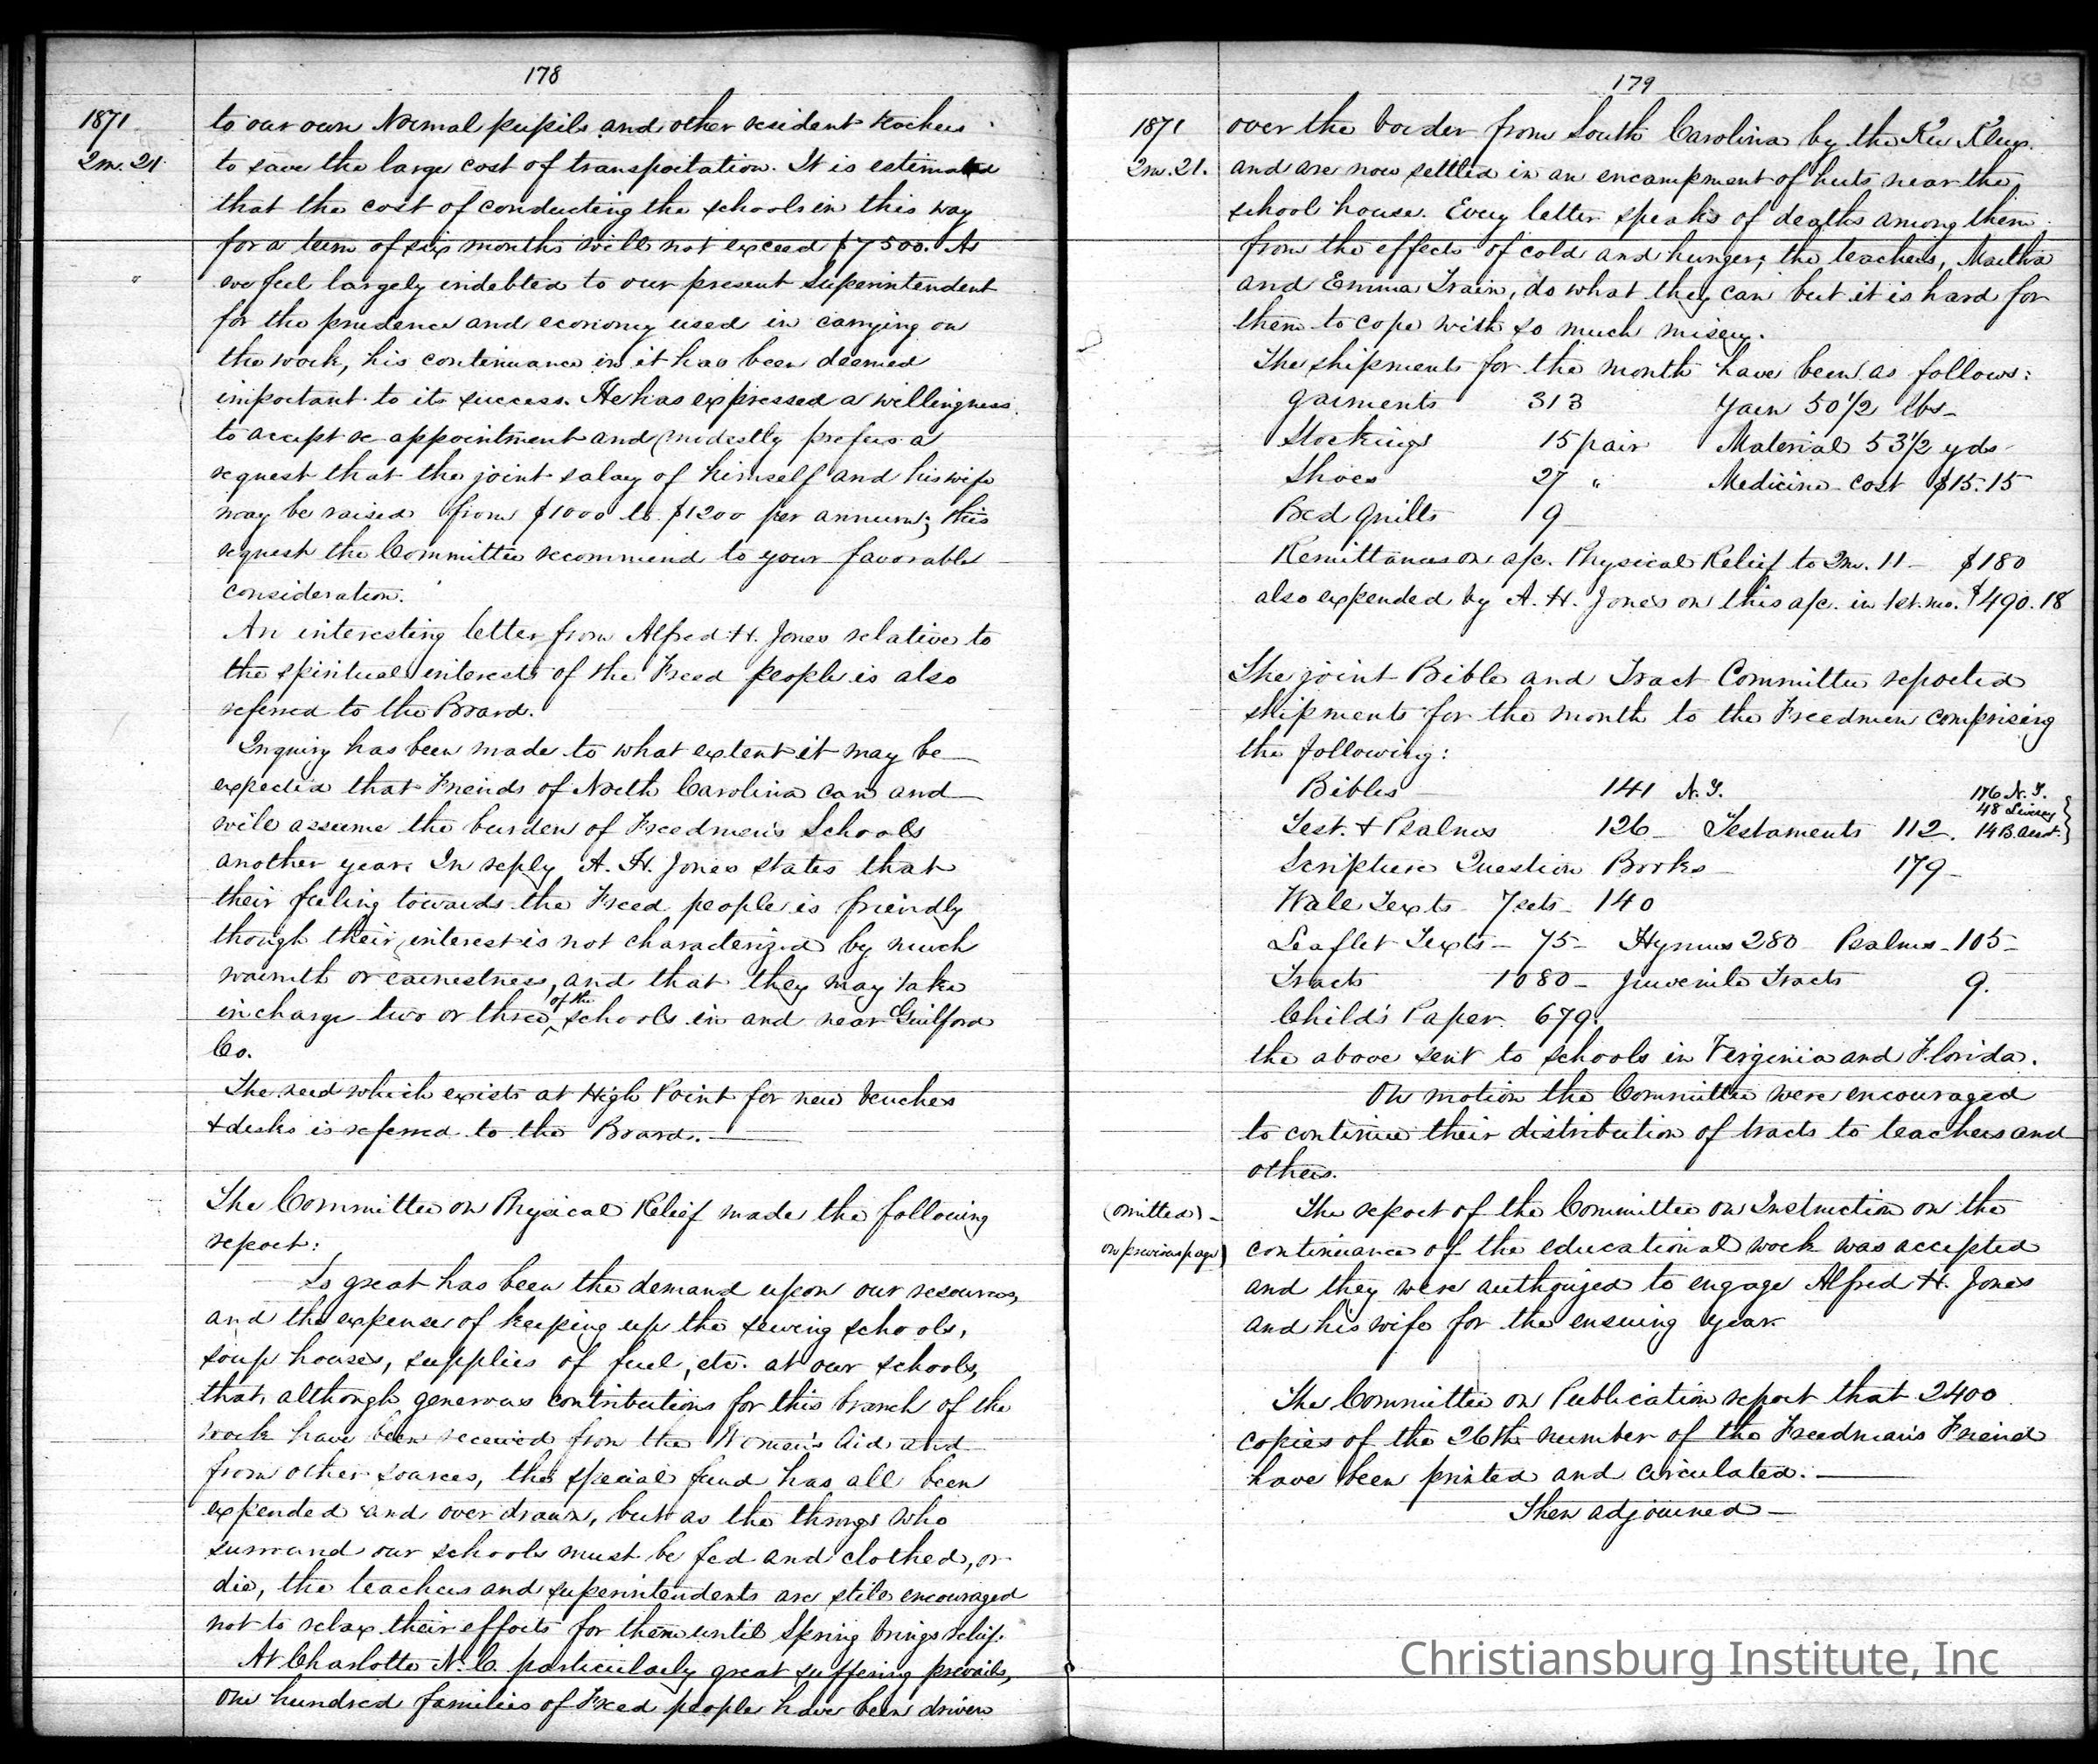 178
1871
2m.21.
to our own Normal pupils and other resident teachers
to save the large cost of transportation. It is estimated
that the cost of conducting the schools in this way
for a term of six months will not exceed $7500. As
we feel largely indebted to our present Superintendent
for the prudence and economy used in carrying on
the work, his continuance in it has been deemed
important to its success. He has expressed a willingness
to accept re appointment and modestly prefers a
request that the joint salary of himself and his wife
may be raised from $1000 to $1200 per annum; this
request the Committee recommend to your favorable
consideration.
An interesting letter from Alfred H. Jones relative to
the spiritual interests of the Freed people is also
referred to the Board.
Inquiry has been made to what extent it may be
expected that Friends of North Carolina can and
will assume the burden of Freedmen's Schools
another year. In reply A. H. Jones states that
their feeling towards the Freed people is friendly
though their interest is not characterized by much
warmth or earnestness, and that they may take
in charge two or three of the schools in and near Guilford
Co.
The need which exists at High Point for new benches
& desks is referred to the Board.
The Committee on Physical Relief made the following
report:
So great has been the demand upon our resources,
and the expense of keeping up the sewing schools,
soup houses, supplies of fuel, etc. at our schools,
that, although generous contributions for this branch of the
work have been received from the Women's Aid and
from other sources, the special fund has all been
expended and over drawn, but as the throngs who
surround our schools must be fed and clothed, or
die, the teachers and superintendents are still encouraged
not to relax their efforts for them until Spring brings relief.
At Charlotte N. C. particularly great suffering prevails,
one hundred families of Freed people have been driven
179
1871
2m.21.
over the border from South Carolina by the Ku Klux.
and are now settled in an encampment of huts near the
school house. Every letter speaks of deaths among them
from the effects of cold and hunger; the teachers, Martha
and Emma Train, do what they can but it is hard for
them to cope with so much misery.
The shipments for the month have been as follows:
garments 313 Yarn 50 1/2 lbs
Stockings 15 pair Material 53 1/2 yds
Shoes 27 " Medicine cost $15.15
Bed quilts 9
Remittances on a/c. Physical Relief to 2m. 11 - $180
also expended by A. H. Jones on this a/c. in 1st. mo. $490.18
The joint Bible and Tract Committee reported
shipments for the month to the Freedmen comprising
the following:
Bibles 141 N. T. 176 N. T.
48
Test. & Psalms 126 Testaments 112. 14
Scripture Question Books 179
Wall Texts 7 sets 140
Leaflet Texts 75 Hymns 280 Psalms 105
Tracts 1080 Juvenile Tracts 9.
Child's Paper 679.
the above sent to schools in Virginia and Florida.
On motion the Committee were encouraged
to continue their distribution of tracts to teachers and
others.
(omitted)
on previous page)
The report of the Committee on Instruction on the
continuance of the educational work was accepted
and they were authorized to engage Alfred H. Jones
and his wife for the ensuing year.
The Committee on Publication report that 2400
copies of the 26th number of the Freedman's Friend
have been printed and circulated.
Then adjourned
Christiansburg Institute, Inc